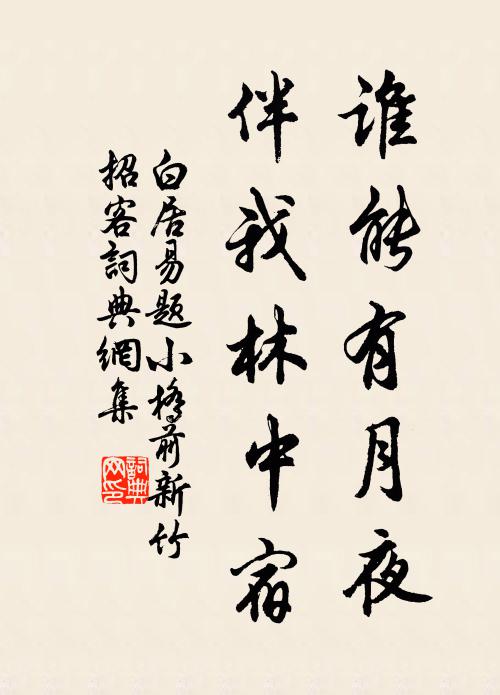 谁能有月夜
伴我林中宿
白居易题小橋前新竹
招客詞典網集
詞典网印